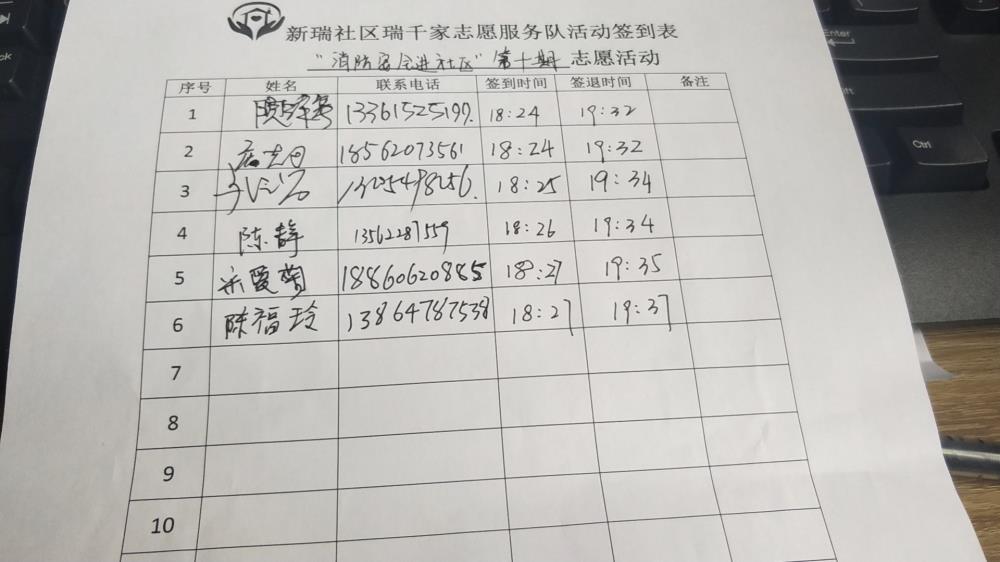 新瑞社区瑞千家志愿服务队活动签到表
"消防安全进社区"第十期 志愿活动
序号 姓名 联系电话 签到时间 签退时间 备注
1 13361525199. 18:24 19:32
2 18562073561 18:24 19:32
3 13255498256. 18:25 19:34
4 陈静 13562287559 18:26 19:34
5 宋爱菊 18860620885 18:27 19:35
6 陈福玲 13864787538 18:27 19:37
7
8
9
10
Enter
Ctrl